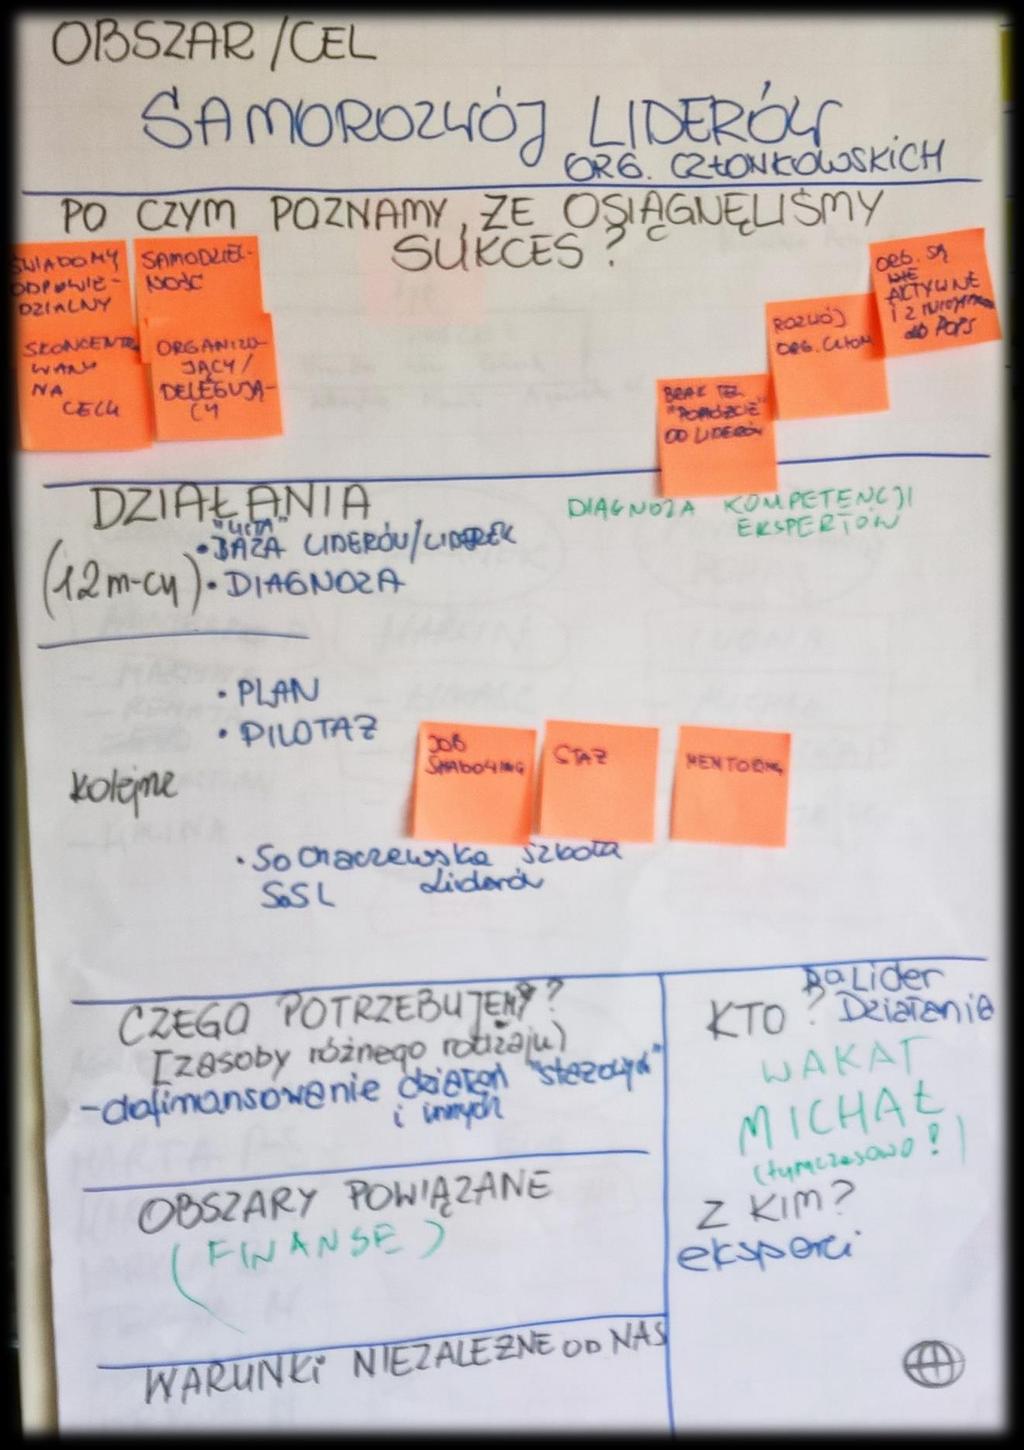 OBSZAR/CEL
SAMOROZWÓJ LIDERÓW
ORG. CZŁONKOWSKICH
PO CZYM POZNAMY, ŻE OSIĄGNĘLIŚMY
SUKCES?
ŚWIADOMY
ODPOWIE-
DZIALNY
SAMODZIEL-
NOŚĆ
SKONCENTRO
WANY
NA
CELU
ORGANIZU-
JĄCY/
DELEGUJĄ-
CY
ORG. SĄ
AKTYWNE
DO POPS
ROZWÓJ
ORG. CZŁON
BRAK TEL.
"POMÓŻCIE"
OD LIDERÓW
DZIAŁANIA
DIAGNOZA KOMPETENCJI
EKSPERTÓW
"LISTA"
• BAZA LIDERÓW/LIDEREK
(12 m-cy) • DIAGNOZA
• PLAN
• PILOTAŻ
JOB
SHADOWING
STAŻ
MENTORING
Kolejne
• Sochaczewska Szkoła
SoSL Liderów
CZEGO POTRZEBUJEMY?
[zasoby różnego rodzaju)
-dofinansowanie działań "stażowych"
i innych
OBSZARY POWIĄZANE
(FINANSE)
WARUNKI NIEZALEŻNE OD NAS
Lider
KTO? Działania
WAKAT
MICHAŁ
(tymczasowo!)
Z KIM?
eksperci